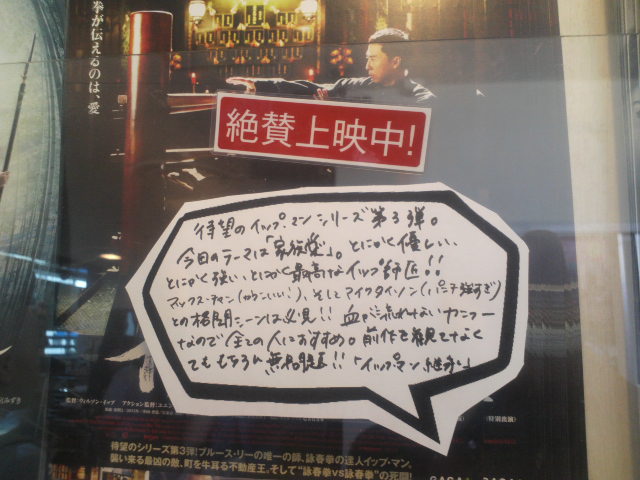 拳が伝えるのは、愛
絶賛上映中!
待望のイップ・マンシリーズ第3弾。
今回のテーマは「家族愛」。とにかく優しい、
とにかく強い、とにかく最高なイップ師匠!!
マックス・チャン(かっこいい!)、そしてマイクタイソン(パンチ強すぎ)
との格闘シーンは必見!! 血が流れないカンフー
なので全ての人におすすめ。前作を観てなく
てももちろん無問題!!「イップマン継承」
監督:ウィルソン・イップ アクション監督:ユエン
(特別出演)
待望のシリーズ第3弾!ブルース・リーの唯一の師、詠春拳の達人イップ・マン。
襲い来る最凶の敵、町を牛耳る不動産王。そして“詠春拳vs詠春拳”の死闘!